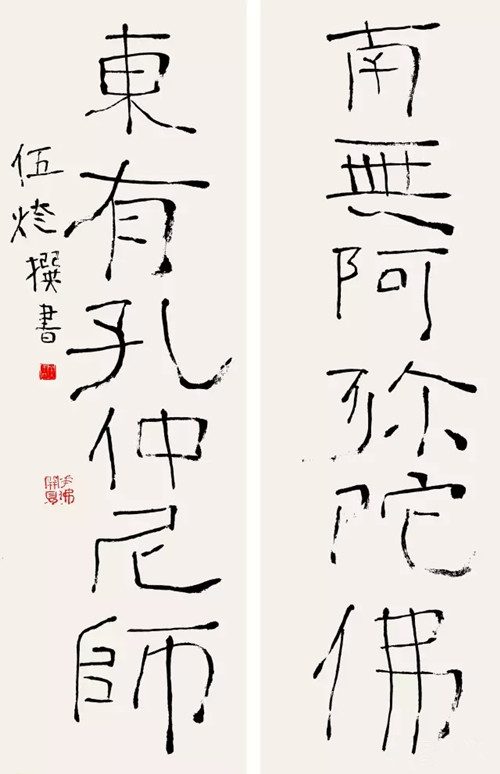 南無阿弥陀佛
東有孔仲尼師
伍撰書